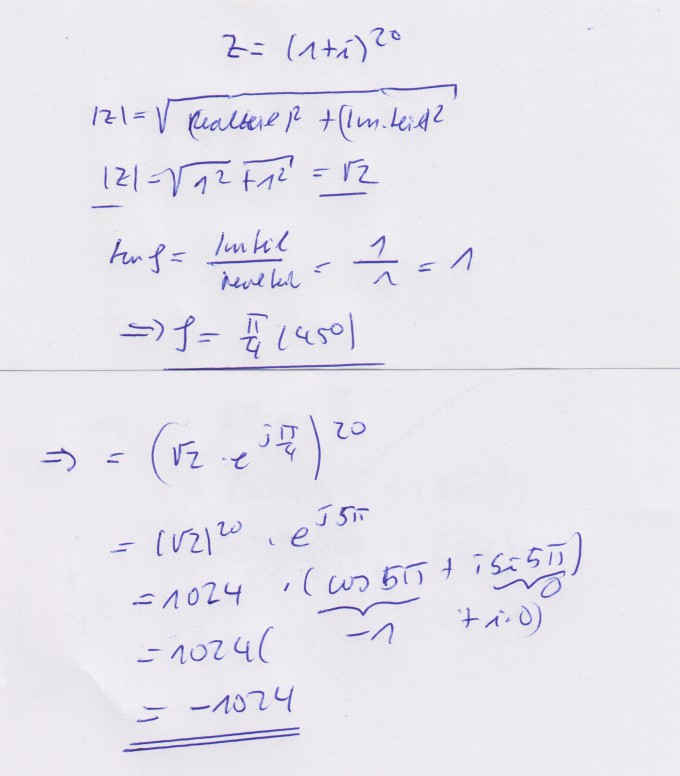 z = (1+i)^20
|z| = √(Realteil)² + (Im.teil)²
|z| = √1² + 1² = √2
tan φ = Imteil / Realteil = 1/1 = 1
⇒ φ = π/4 (45°)
⇒ = (√2 · e^(j π/4))^20
= (√2)^20 · e^(j5π)
= 1024 · (cos 5π + i si 5π)
-1 + i·0) 0
= 1024(
= -1024